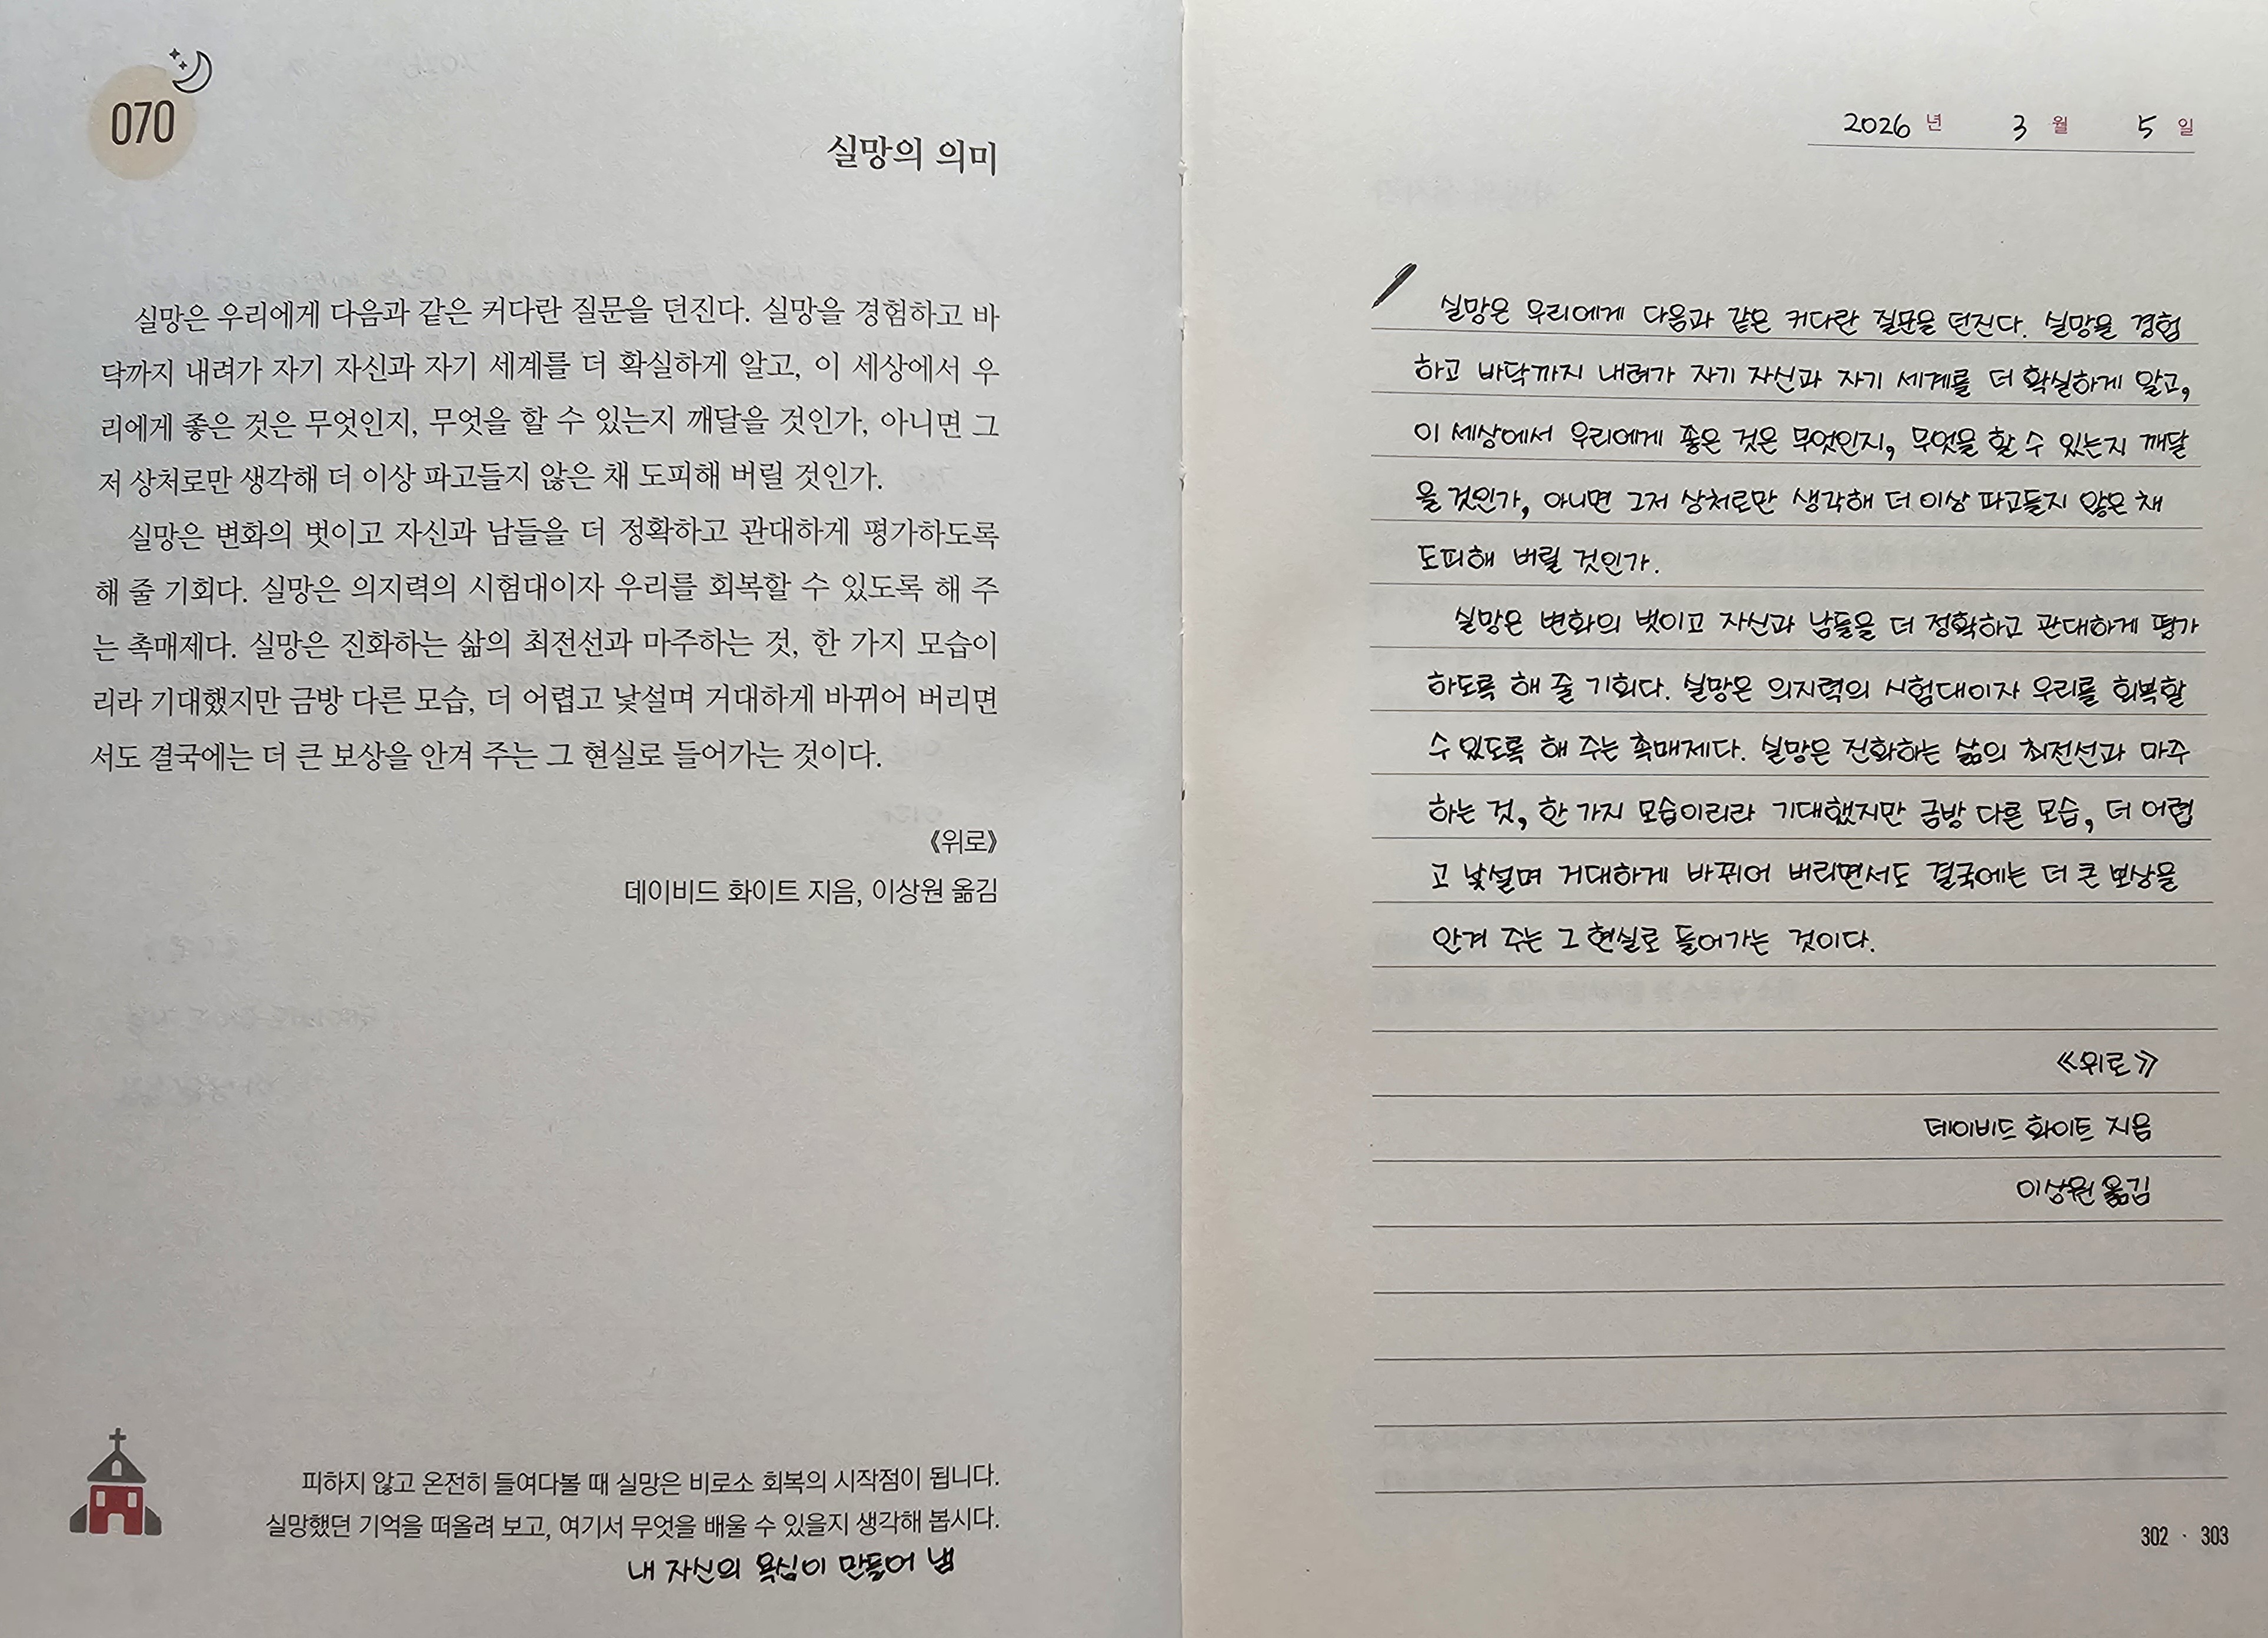 070
실망의 의미
실망은 우리에게 다음과 같은 커다란 질문을 던진다. 실망을 경험하고 바
닥까지 내려가 자기 자신과 자기 세계를 더 확실하게 알고, 이 세상에서 우
리에게 좋은 것은 무엇인지, 무엇을 할 수 있는지 깨달을 것인가, 아니면 그
저 상처로만 생각해 더 이상 파고들지 않은 채 도피해 버릴 것인가.
실망은 변화의 벗이고 자신과 남들을 더 정확하고 관대하게 평가하도록
해 줄 기회다. 실망은 의지력의 시험대이자 우리를 회복할 수 있도록 해 주
는 촉매제다. 실망은 진화하는 삶의 최전선과 마주하는 것, 한 가지 모습이
리라 기대했지만 금방 다른 모습, 더 어렵고 낯설며 거대하게 바뀌어 버리면
서도 결국에는 더 큰 보상을 안겨 주는 그 현실로 들어가는 것이다.
《위로》
데이비드 화이트 지음, 이상원 옮김
피하지 않고 온전히 들여다볼 때 실망은 비로소 회복의 시작점이 됩니다.
실망했던 기억을 떠올려 보고, 여기서 무엇을 배울 수 있을지 생각해 봅시다.
내 자신의 욕심이 만들어 냄
2026 년 3 월 5 일
실망은 우리에게 다음과 같은 커다란 질문을 던진다. 실망을 경험
하고 바닥까지 내려가 자기 자신과 자기 세계를 더 확실하게 알고,
이 세상에서 우리에게 좋은 것은 무엇인지, 무엇을 할 수 있는지 깨달
을 것인가, 아니면 그저 상처로만 생각해 더 이상 파고들지 않은 채
도피해 버릴 것인가.
실망은 변화의 벗이고 자신과 남들을 더 정확하고 관대하게 평가
하도록 해 줄 기회다. 실망은 의지력의 시험대이자 우리를 회복할
수 있도록 해 주는 촉매제다. 실망은 진화하는 삶의 최전선과 마주
하는 것, 한 가지 모습이리라 기대했지만 금방 다른 모습, 더 어렵
고 낯설며 거대하게 바뀌어 버리면서도 결국에는 더 큰 보상을
안겨 주는 그 현실로 들어가는 것이다.
《위로》
데이비드 화이트 지음
이상원 옮김
302 · 303